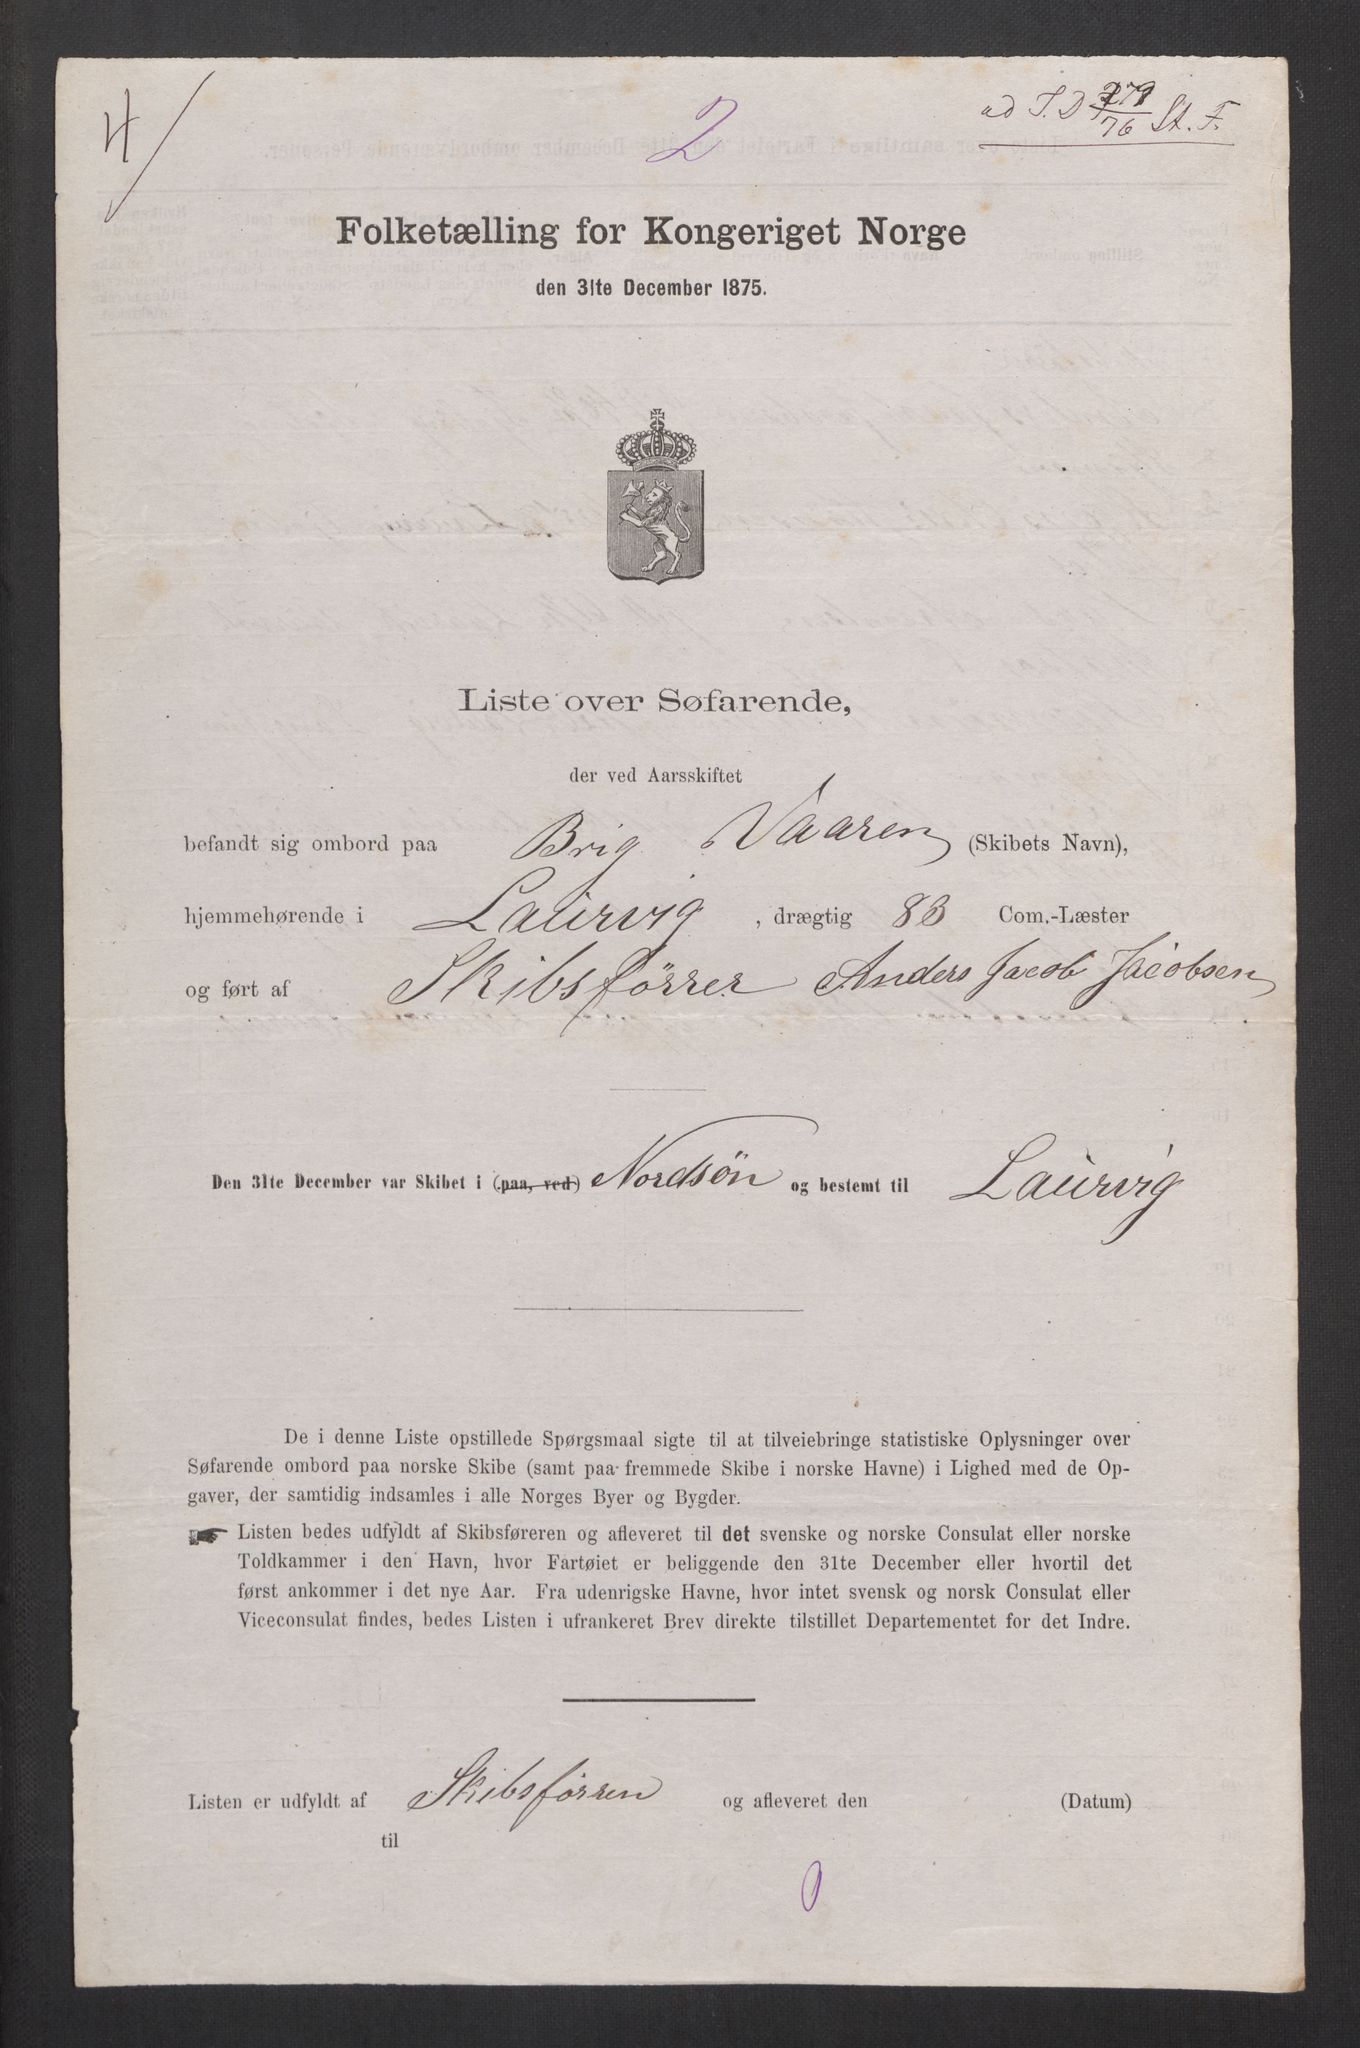 4/
2
ad I.D 279/76 St. F.
Folketælling for Kongeriget Norge
den 31te December 1875.
Liste over Søfarende,
der ved Aarsskiftet
befandt sig ombord paa Brig Vaaren (Skibets Navn),
hjemmehørende i Laurvig, drægtig 83 Com.-Læster
og ført af Skibsførrer Anders Jacob Jacobsen
Den 31te December var Skibet i (paa, ved) Nordsøn og bestemt til Laurvig
De i denne Liste opstillede Spørgsmaal sigte til at tilveiebringe statistiske Oplysninger over
Søfarende ombord paa norske Skibe (samt paa fremmede Skibe i norske Havne) i Lighed med de Op-
gaver, der samtidig indsamles i alle Norges Byer og Bygder.
☛ Listen bedes udfyldt af Skibsføreren og afleveret til det svenske og norske Consulat eller norske
Toldkammer i den Havn, hvor Fartøiet er beliggende den 31te December eller hvortil det
først ankommer i det nye Aar. Fra udenrigske Havne, hvor intet svensk og norsk Consulat eller
Viceconsulat findes, bedes Listen i ufrankeret Brev direkte tilstillet Departementet for det Indre.
Listen er udfyldt af Skibsførren og afleveret den (Datum)
til
0